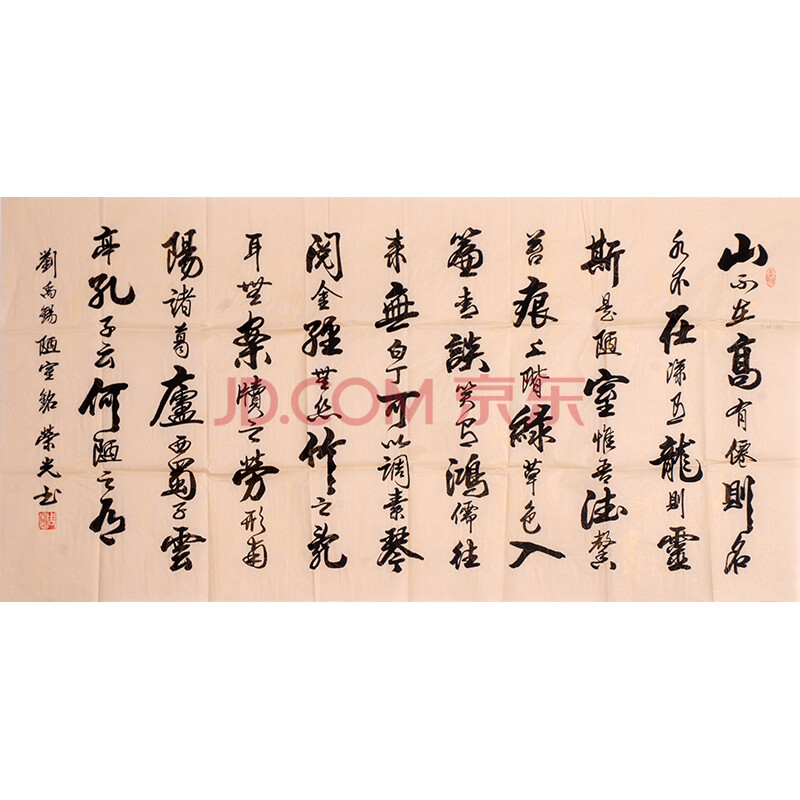 山不在高有僊則名
水不在深有龍則靈
斯是陋室惟吾德馨
苔痕上階綠草色入
簾青談笑有鴻儒往
來無白丁可以調素琴
閱金經無絲竹之亂
耳無案牘之勞形南
陽諸葛廬西蜀子雲
亭孔子云何陋之有
劉禹錫陋室銘 榮光书
JD.COM 京东